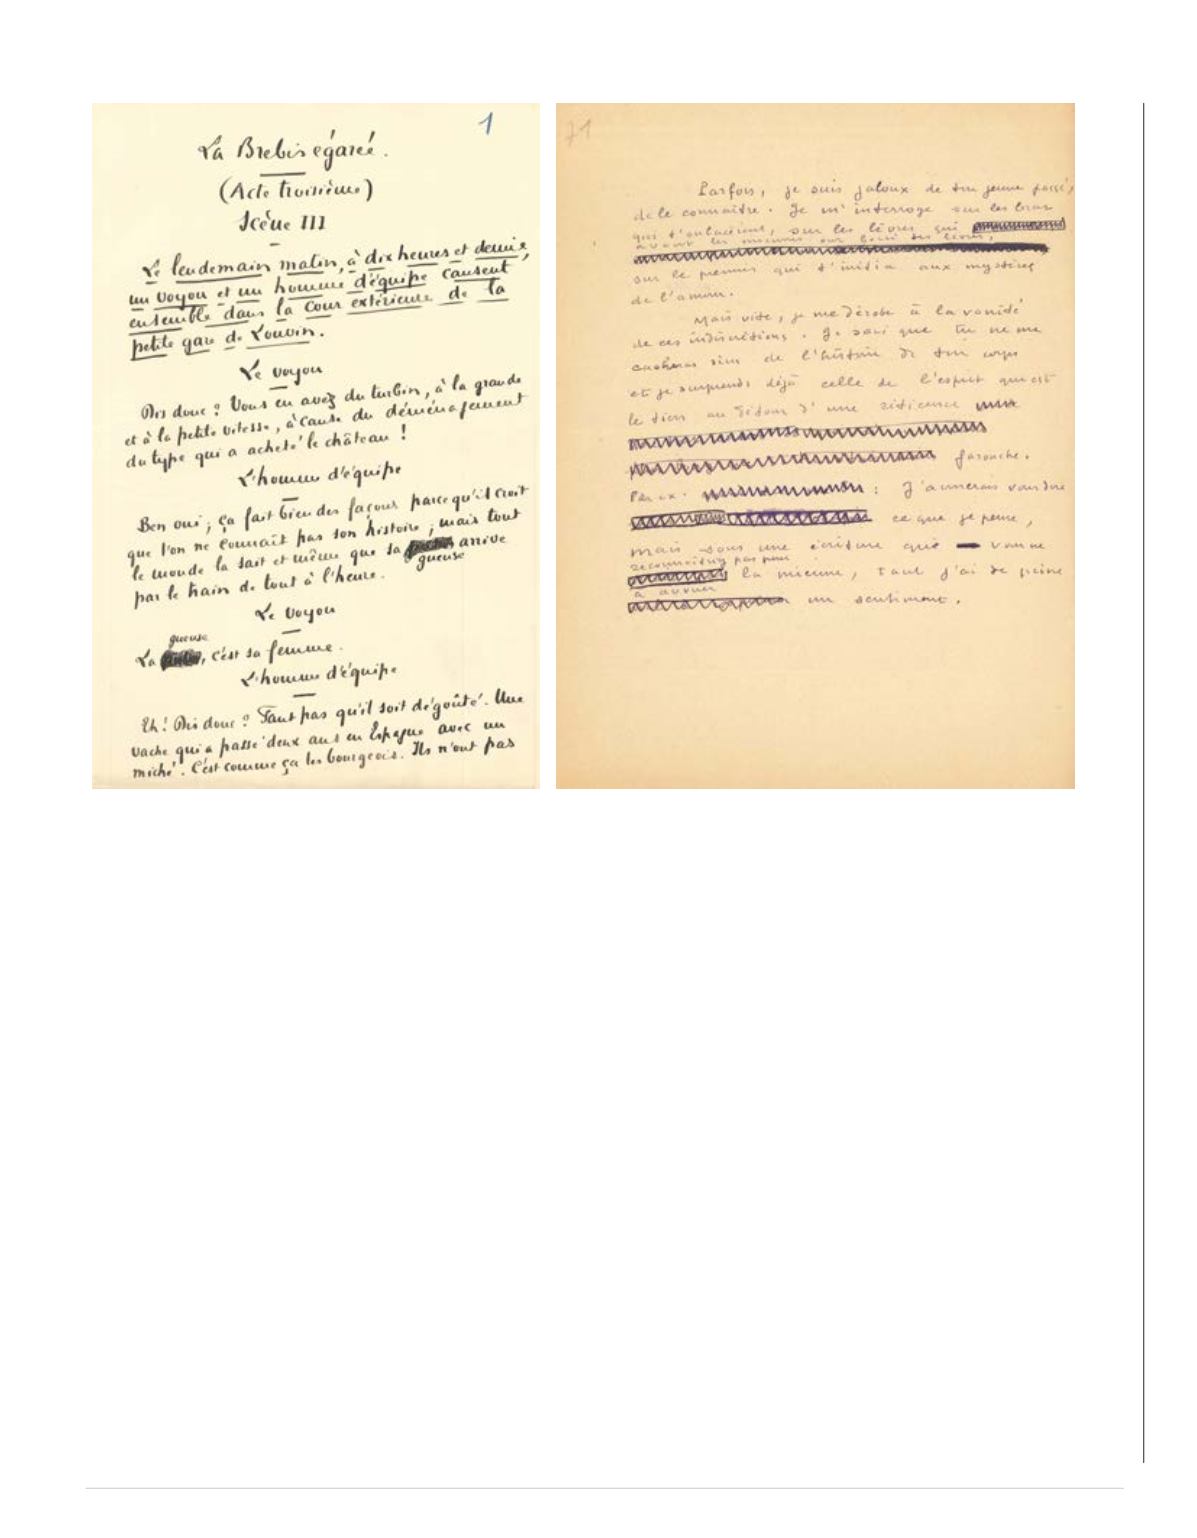 1
La Brebis égarée.
(Acte troisième)
Scène III
Le lendemain matin, à dix heures et demie,
un voyou et un homme d'équipe causent
ensemble dans la cour extérieure de la
petite gare de Louvin.
Le voyou
Dis donc ? Vous en avez du turbin, à la grande
et à la petite vitesse, à cause du déménagement
du type qui a acheté le château !
L'homme d'équipe
Ben oui ; ça fait bien des façons parce qu'il croit
que l'on ne connaît pas son histoire ; mais tout
le monde la sait et même que sa arrive
gueuse
par le train de tout à l'heure.
Le voyou
gueuse
La , c'est sa femme.
L'homme d'équipe
Eh ! Dis donc ? Faut pas qu'il soit dégoûté. Une
vache qui a passé deux ans en Espagne avec un
miché. C'est comme ça les bourgeois. Ils n'ont pas
71
Parfois, je suis jaloux de ton jeune passé,
de le connaître. Je m'interroge sur les bras
qui t'enlacèrent, sur les lèvres qui
avant les miennes ont
sur le premier qui t'initia aux mystères
de l'amour.
Mais vite, je me dérobe à la vanité
de ces indiscrétions. Je sais que tu ne me
cacheras rien de l'histoire de ton corps
et je surprends déjà celle de l'esprit qui est
le tien au détour d'une réticence
farouche.
Par ex. : J'aimerais vous dire
ce que je pense,
mais sous une écriture que vous ne
reconnaîtriez pas pour
la mienne, tant j'ai de peine
à avouer
un sentiment.